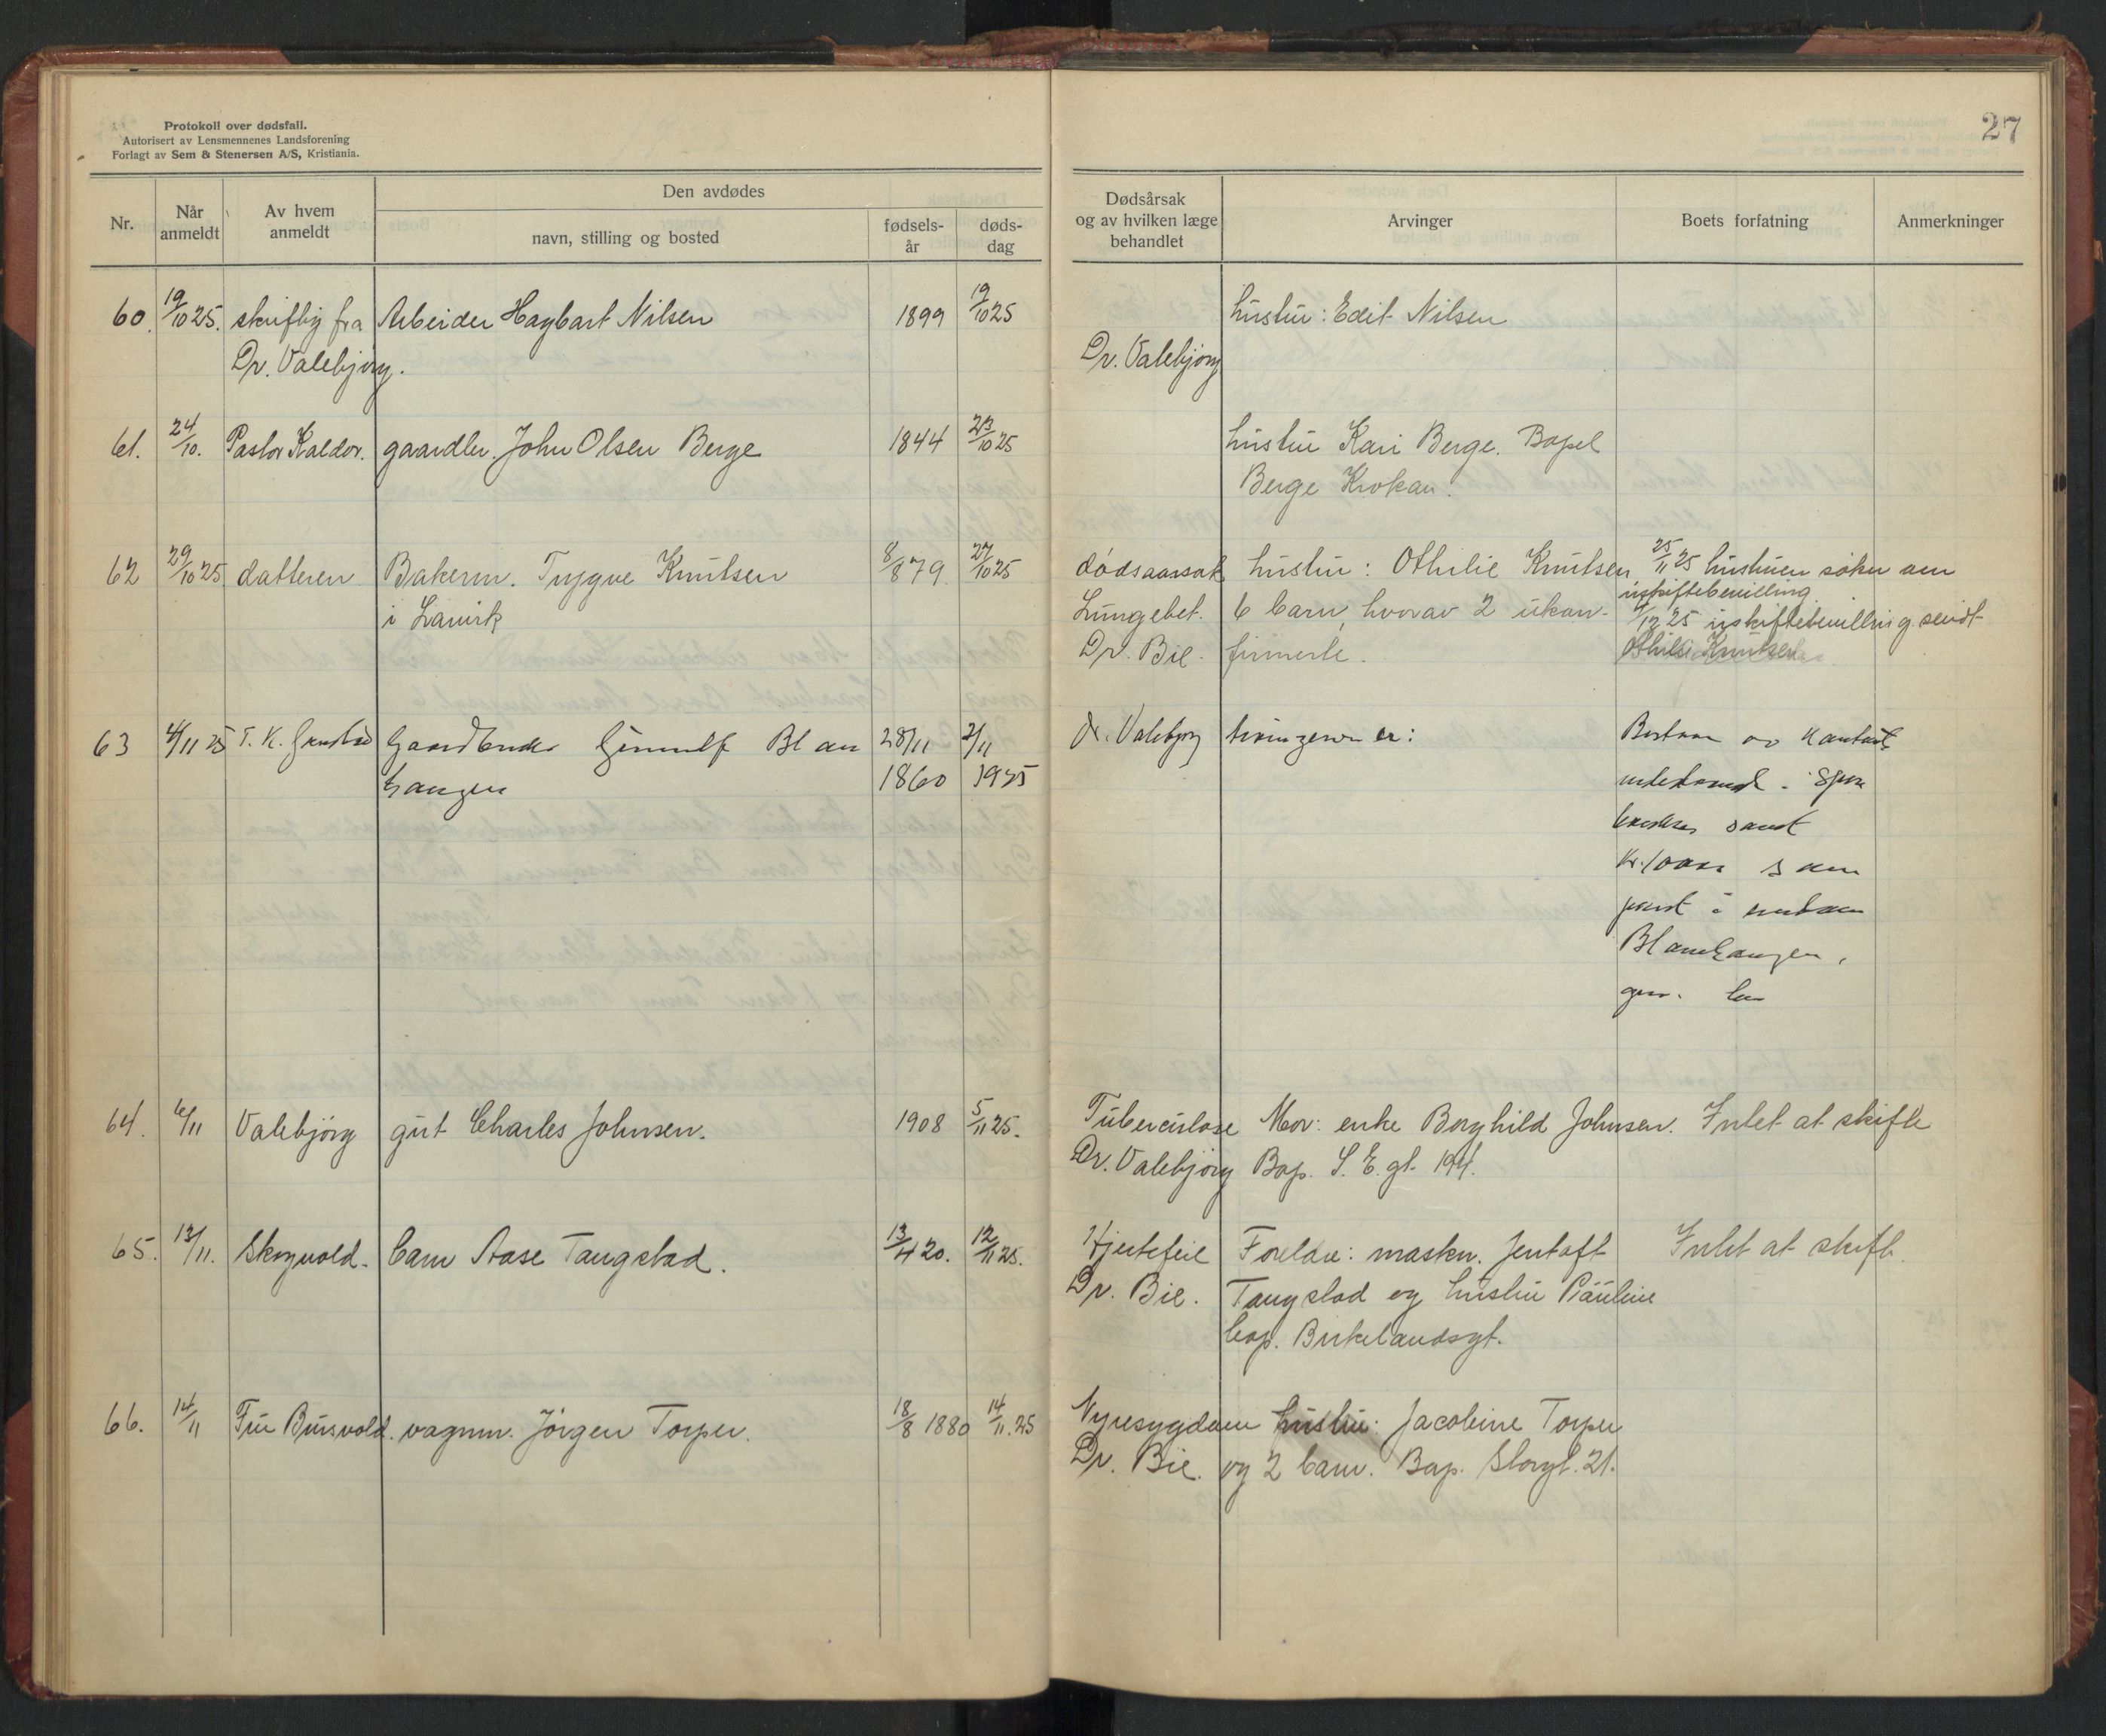 Protokoll over dødsfall.
Autorisert av Lensmennenes Landsforening
Forlagt av Sem & Stenersen A/S, Kristiania.
27
Nr.
Når anmeldt
Av hvem anmeldt
Den avdødes
navn, stilling og bosted
fødsels-år
døds-dag
Dødsårsak og av hvilken læge behandlet
Arvinger
Boets forfatning
Anmerkninger
60. 19/10 25. skriftlig fra Arbeider Hagbart Nilsen 1899 19/10 25 hustru: Edit Nilsen
Dr. Valebjørg. Dr. Valebjørg
61. 24/10. Pastor Kaldor. gaardbr. John Olsen Berge 1844 23/10 25 hustru Kari Berge. Bopel
Berge Krokan.
62 29/10 25 datteren Bakerm. Trygve Knutsen 8/8 79 27/10 25 dødsaarsak hustru: Othilie Knutsen 25/11 25 hustruen søker om
uskiftebevilling.
i Larvik Lungebet. 6 barn, hvorav 2 ukon- /12 25 uskiftebevilling sendt
Dr. Bie. firmerte. Othilie Knutsen
63 4/11 25 T. K. Gaardbruker Blan 28/11 2/11 Dr. Valebjørg er: av
haugen 1860 1925
samt
Kr. som
pant i
Blanhaugen,
64. 6/11 Valebjörg gut Charles Johnsen. 1908 5/11 25. Tuberculose Mor: enke Borghild Johnsen. Intet at skifte
Dr. Valebjörg Bop. S. E. gt. 194.
65. 13/11. Skogvold. barn Aase Tangstad. 13/4 20. 12/11 25. Hjertefeil Foreldre: maskn. Jentoft Intet at skifte.
Dr. Bie. Tangstad og hustru Pauline
bop. Birkelandsgt.
66. 14/11 Fru Bursvold. vognm. Jörgen Torper. 18/8 1880 14/11. 25 Nyresygdom hustru: Jacobine Torper
Dr. Bie. og 2 barn. Bop. Storgt. 21.